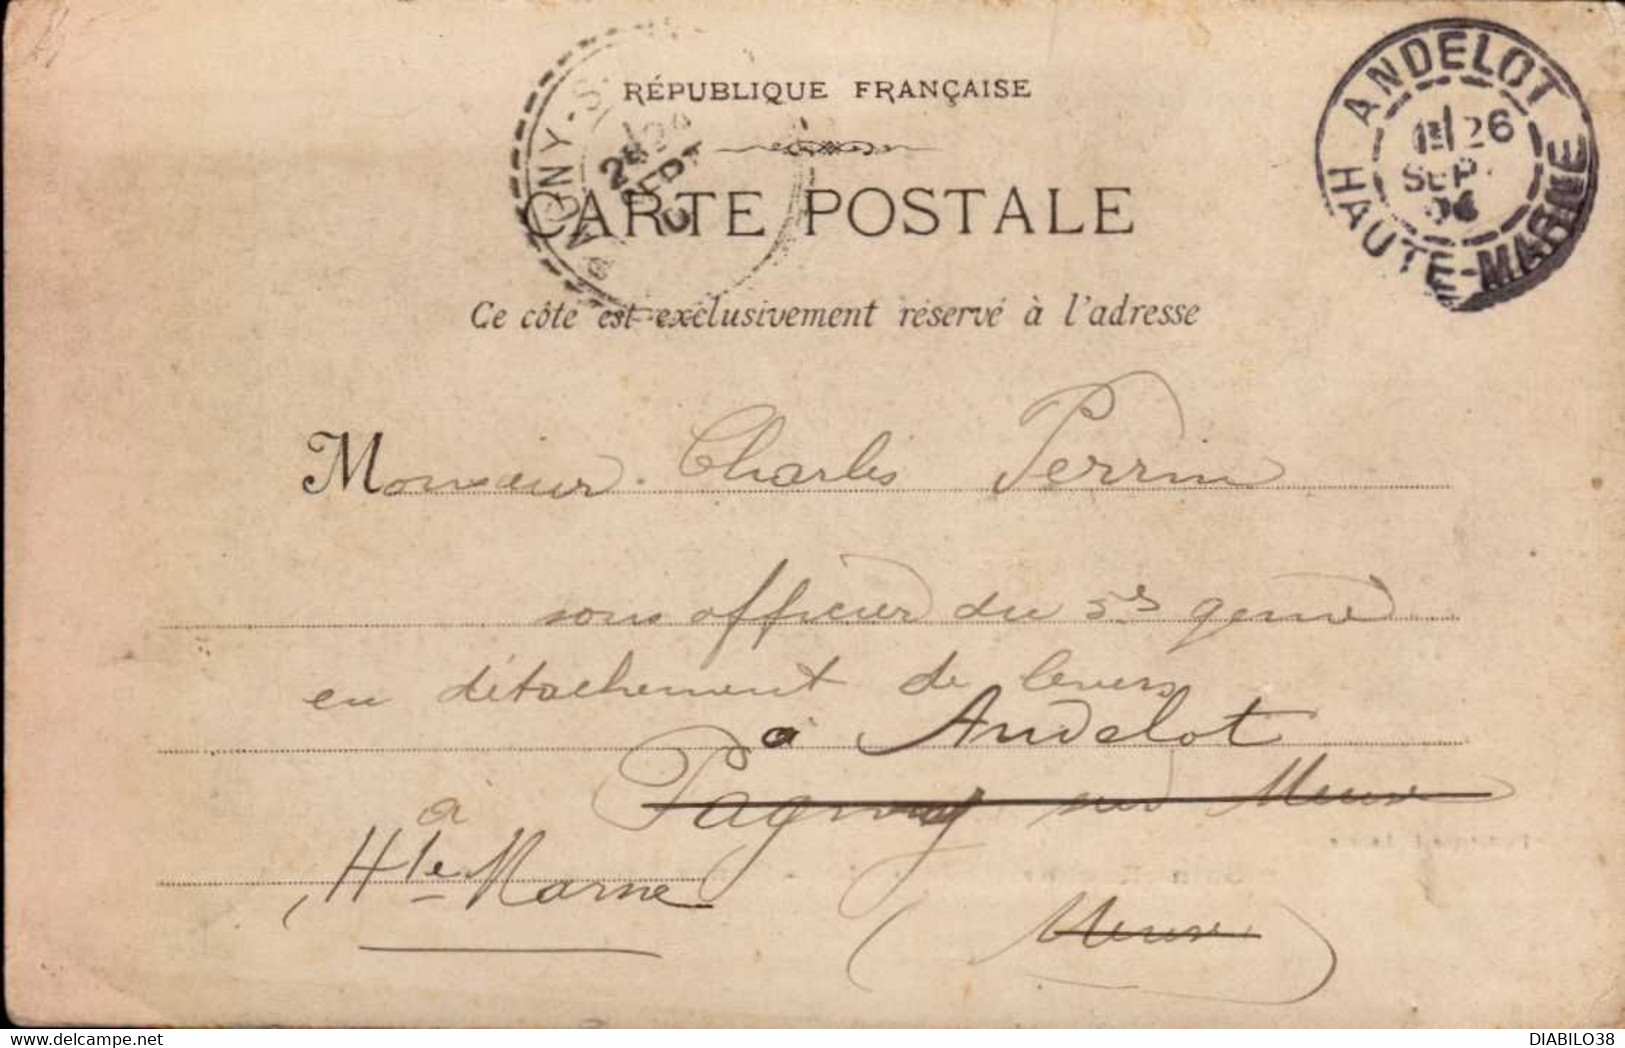 RÉPUBLIQUE FRANÇAISE
CARTE POSTALE
Ce côté est exclusivement réservé à l'adresse
ANDELOT
26
SEPT
HAUTE-MARNE
Monsieur Charles Perrin
sous officier du 5e génie
en détachement de levers
à Andelot
à Pagny sur Meuse
Hte Marne
(Meuse)
DIABILO38